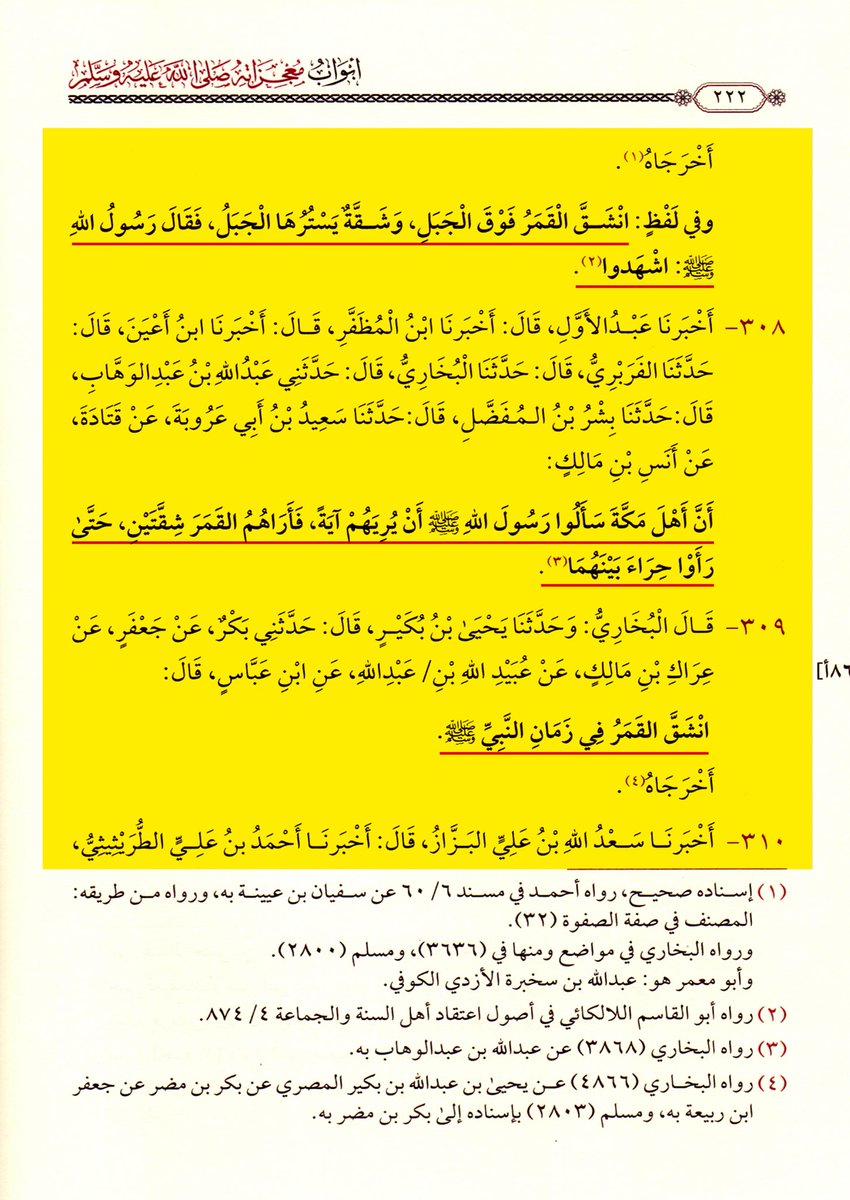 أبواب معجزاته صلى الله عليه وسلم
٢٢٢
أَخْرَجَاهُ(١).
وفي لَفْظٍ: انْشَـقَّ الْقَمَرُ فَوْقَ الْجَبَلِ، وَشَـقَّةٌ يَسْتُرُهَا الْجَبَلُ، فَقَالَ رَسُولُ اللهِ
ﷺ: اشْهَدوا(٢).
٣٠٨- أَخْبَرنَا عَبْـدُالأَوَّلِ، قَالَ: أَخْبَرنَا ابْنُ الْمُظَفَّرِ، قَـالَ: أَخْبَرنَا ابنُ أَعْيَنَ، قَالَ:
حَدَّثَنَا الفَرَبْرِيُّ، قَالَ: حَدَّثَنَا الْبُخَارِيُّ، قَالَ: حَدَّثَنِي عَبْدُاللهِ بْنُ عَبْدِالوَهَّابِ،
قَالَ: حَدَّثَنَا بِشْرُ بْنُ الـمُـفَضَّلِ، قَالَ: حَدَّثَنَا سَعِيدُ بْنُ أَبِي عَرُوبَةَ، عَنْ قَتَادَةَ،
عَنْ أَنَسِ بْنِ مَالِكٍ:
أَنَّ أَهْلَ مَكَّةَ سَأَلُوا رَسُولَ اللهِ ﷺ أَنْ يُرِيَهُمْ آيَةً، فَأَرَاهُمُ القَمَرَ شِقَّتَيْنِ، حَتَّىٰ
رَأَوْا حِرَاءَ بَيْنَهُمَا(٣).
٣٠٩- قَـالَ الْبُخَارِيُّ: وَحَدَّثَنَا يَحْيَىٰ بْنُ بُكَيْـرٍ، قَالَ: حَدَّثَنِي بَكْرٌ، عَنْ جَعْفَرٍ، عَنْ
عِرَاكِ بْنِ مَالِكٍ، عَنْ عُبَيْدِ اللهِ بْنِ/ عَبْدِاللهِ، عَنِ ابْنِ عَبَّاسٍ، قَالَ:
٨٦أ]
انْشَقَّ القَمَرُ فِي زَمَانِ النَّبِيِّ ﷺ.
أَخْرَجَاهُ(٤).
٣١٠- أَخْبَرنَـا سَـعْدُ اللهِ بْنُ عَلِيٍّ البَـزَّازُ، قَالَ: أَخْبَرنَـا أَحْمَدُ بنُ عَلِـيٍّ الطُّرَيْثِيثِيُّ،
(١) إسـناده صحيـح، رواه أحمـد في مسند ٦/ ٦٠ عن سـفيان بن عيينـة به، ورواه مـن طريقه:
المصنف في صفة الصفوة (٣٢).
ورواه البخاري في مواضع ومنها في (٣٦٣٦)، ومسلم (٢٨٠٠).
وأبو معمر هو: عبدالله بن سخبرة الأزدي الكوفي.
(٢) رواه أبو القاسم اللالكائي في أصول اعتقاد أهل السنة والجماعة ٤/ ٨٧٤.
(٣) رواه البخاري (٣٨٦٨) عن عبدالله بن عبدالوهاب به.
(٤) رواه البخـاري (٤٨٦٦) عـن يحيىٰ بن عبدالله بن بكير المصري عن بكر بن مضر عن جعفر
ابن ربيعة به، ومسلم (٢٨٠٣) بإسناده إلىٰ بكر بن مضر به.